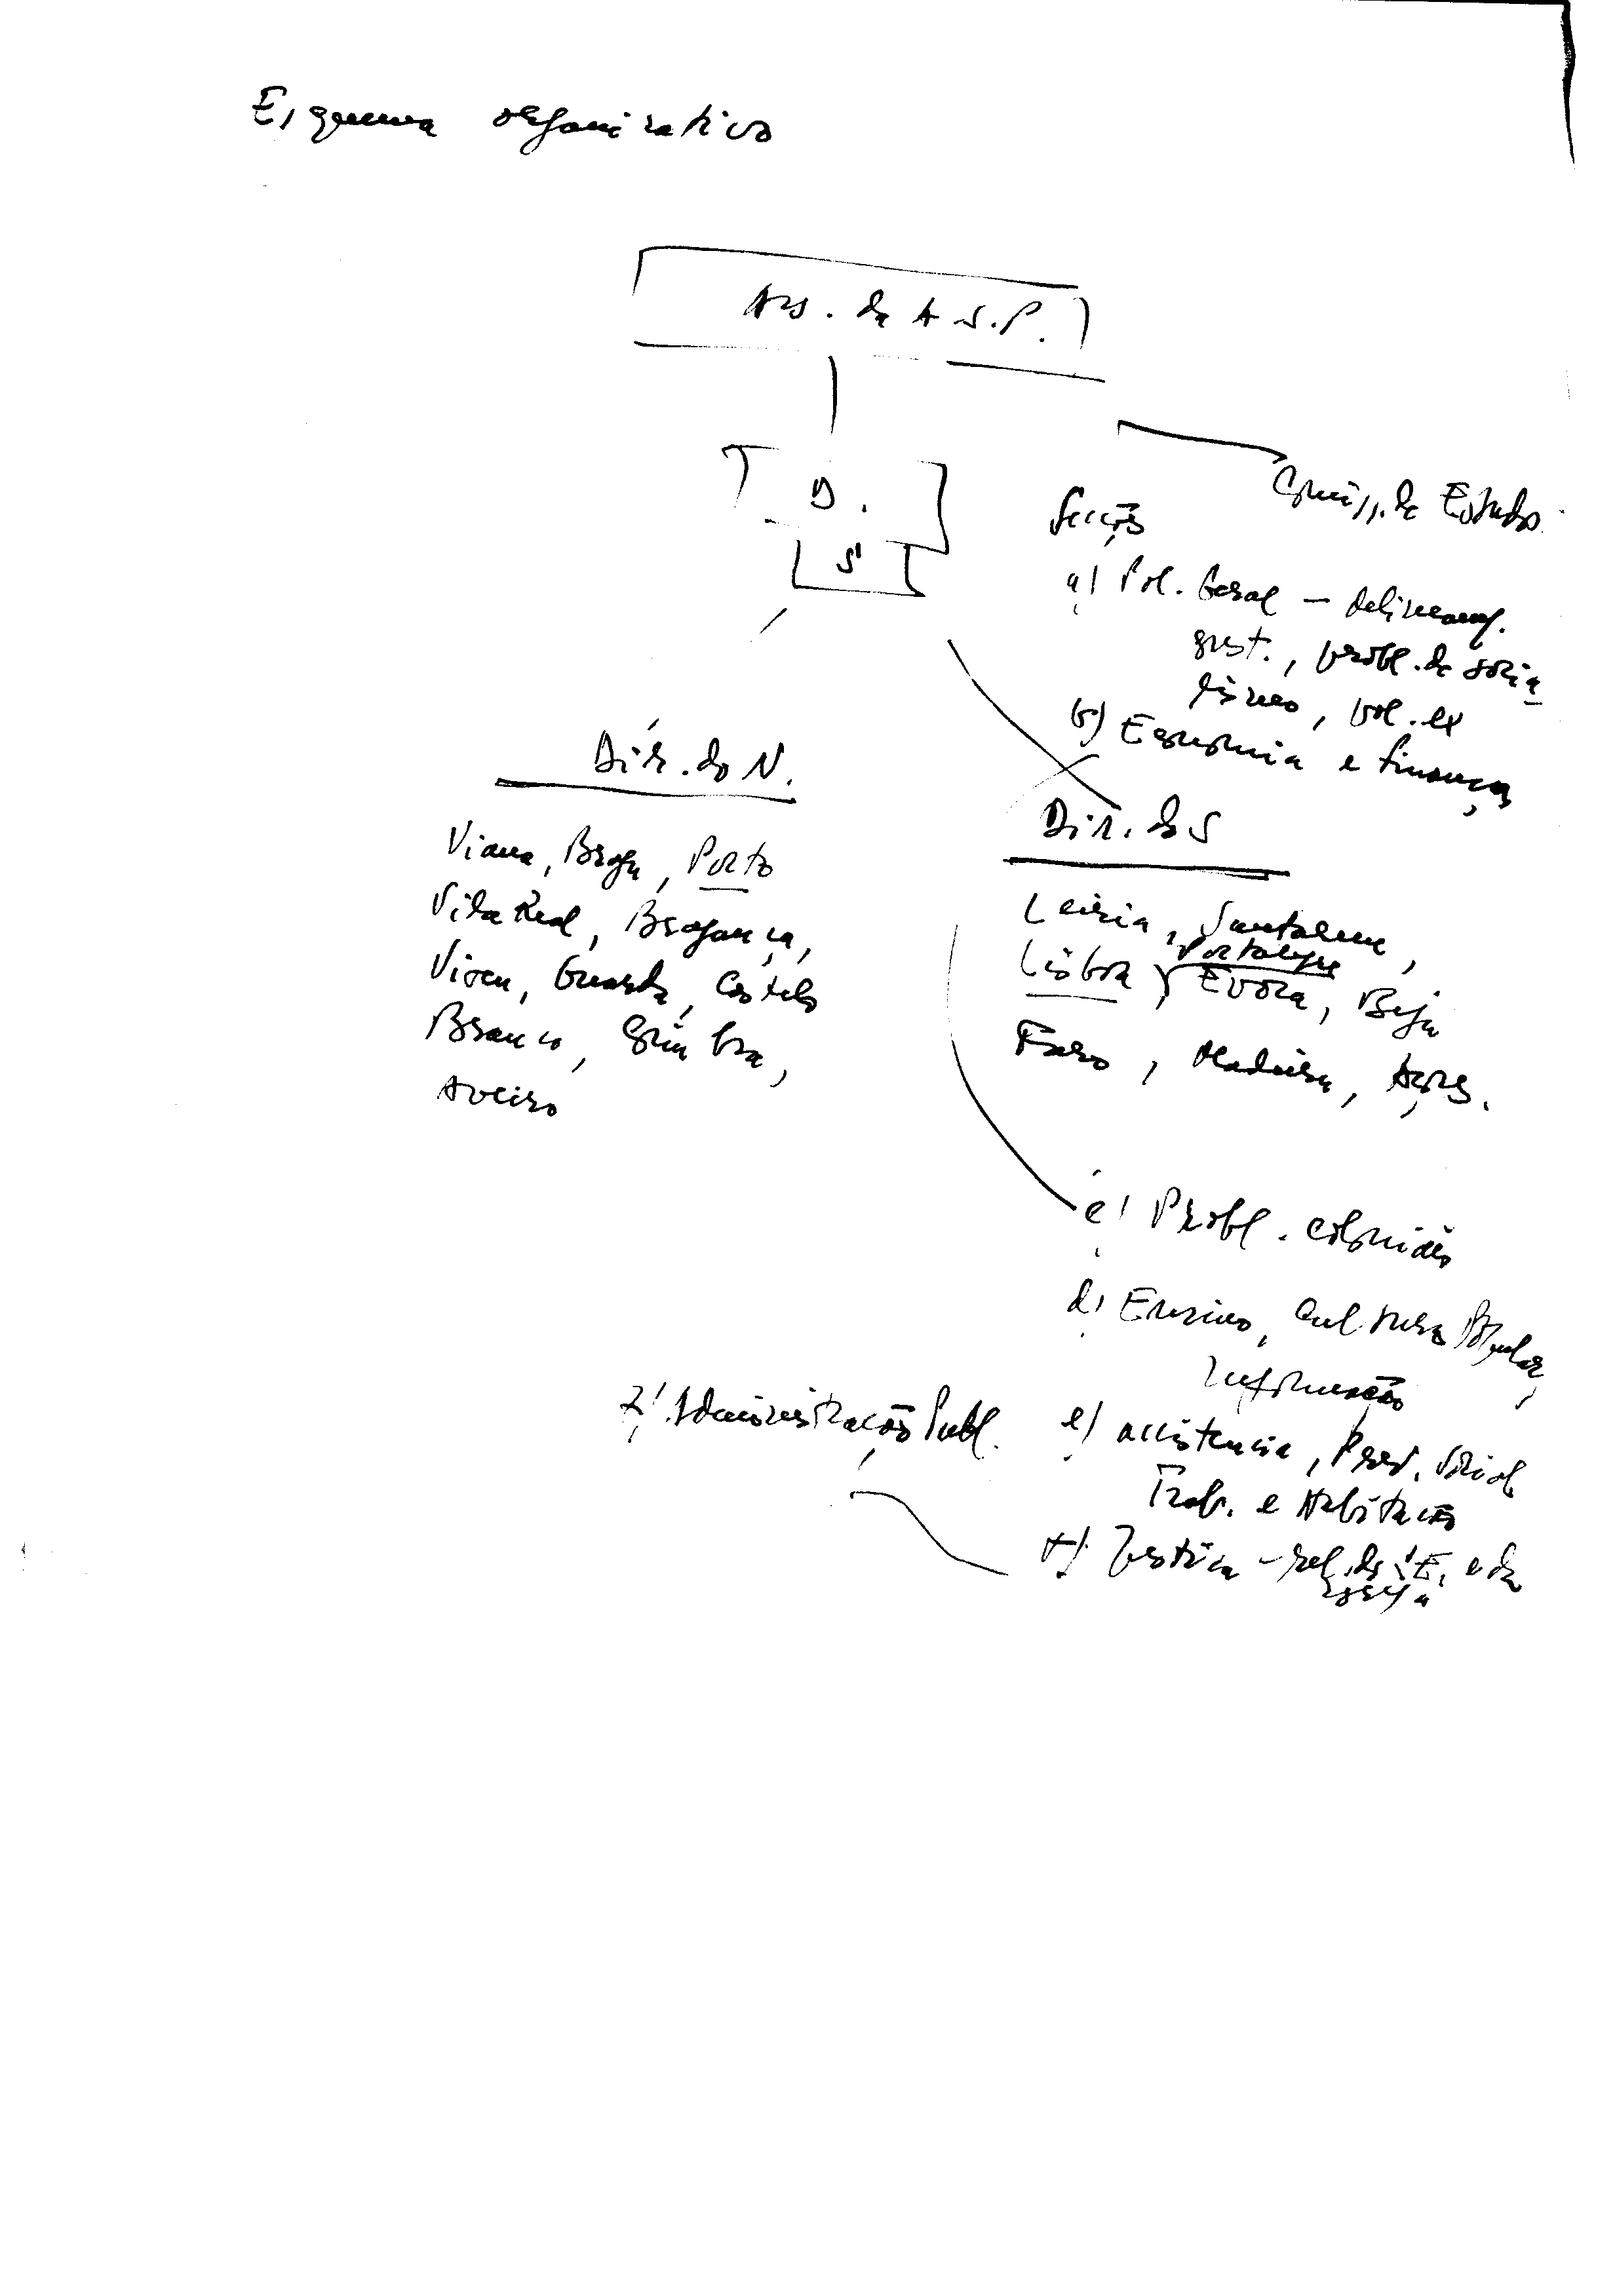 Esquema organizativo
Ass. da A S.P.
D.
S
Comiss. de Estudo
Secções
a) Pol. Geral – delineam.
, probl. de socia-
lismo, pol. ex
b) Economia e finanças
Dir. do N.
Viana, Braga, Porto
Vila Real, Bragança,
Viseu, Guarda, Castelo
Branco, Coimbra,
Aveiro
Dir. do S
Leiria, Santarem,
Portalegre
Lisboa, Evora, Beja
Faro, Madeira, Açores.
c) Probl. coloniais
d) Ensino, Cultura Popular,
Informação
e) assistencia, Prev. Social
Trab. e Habitação
f) Justiça – rel. da I. e do
z) Administração Publ.